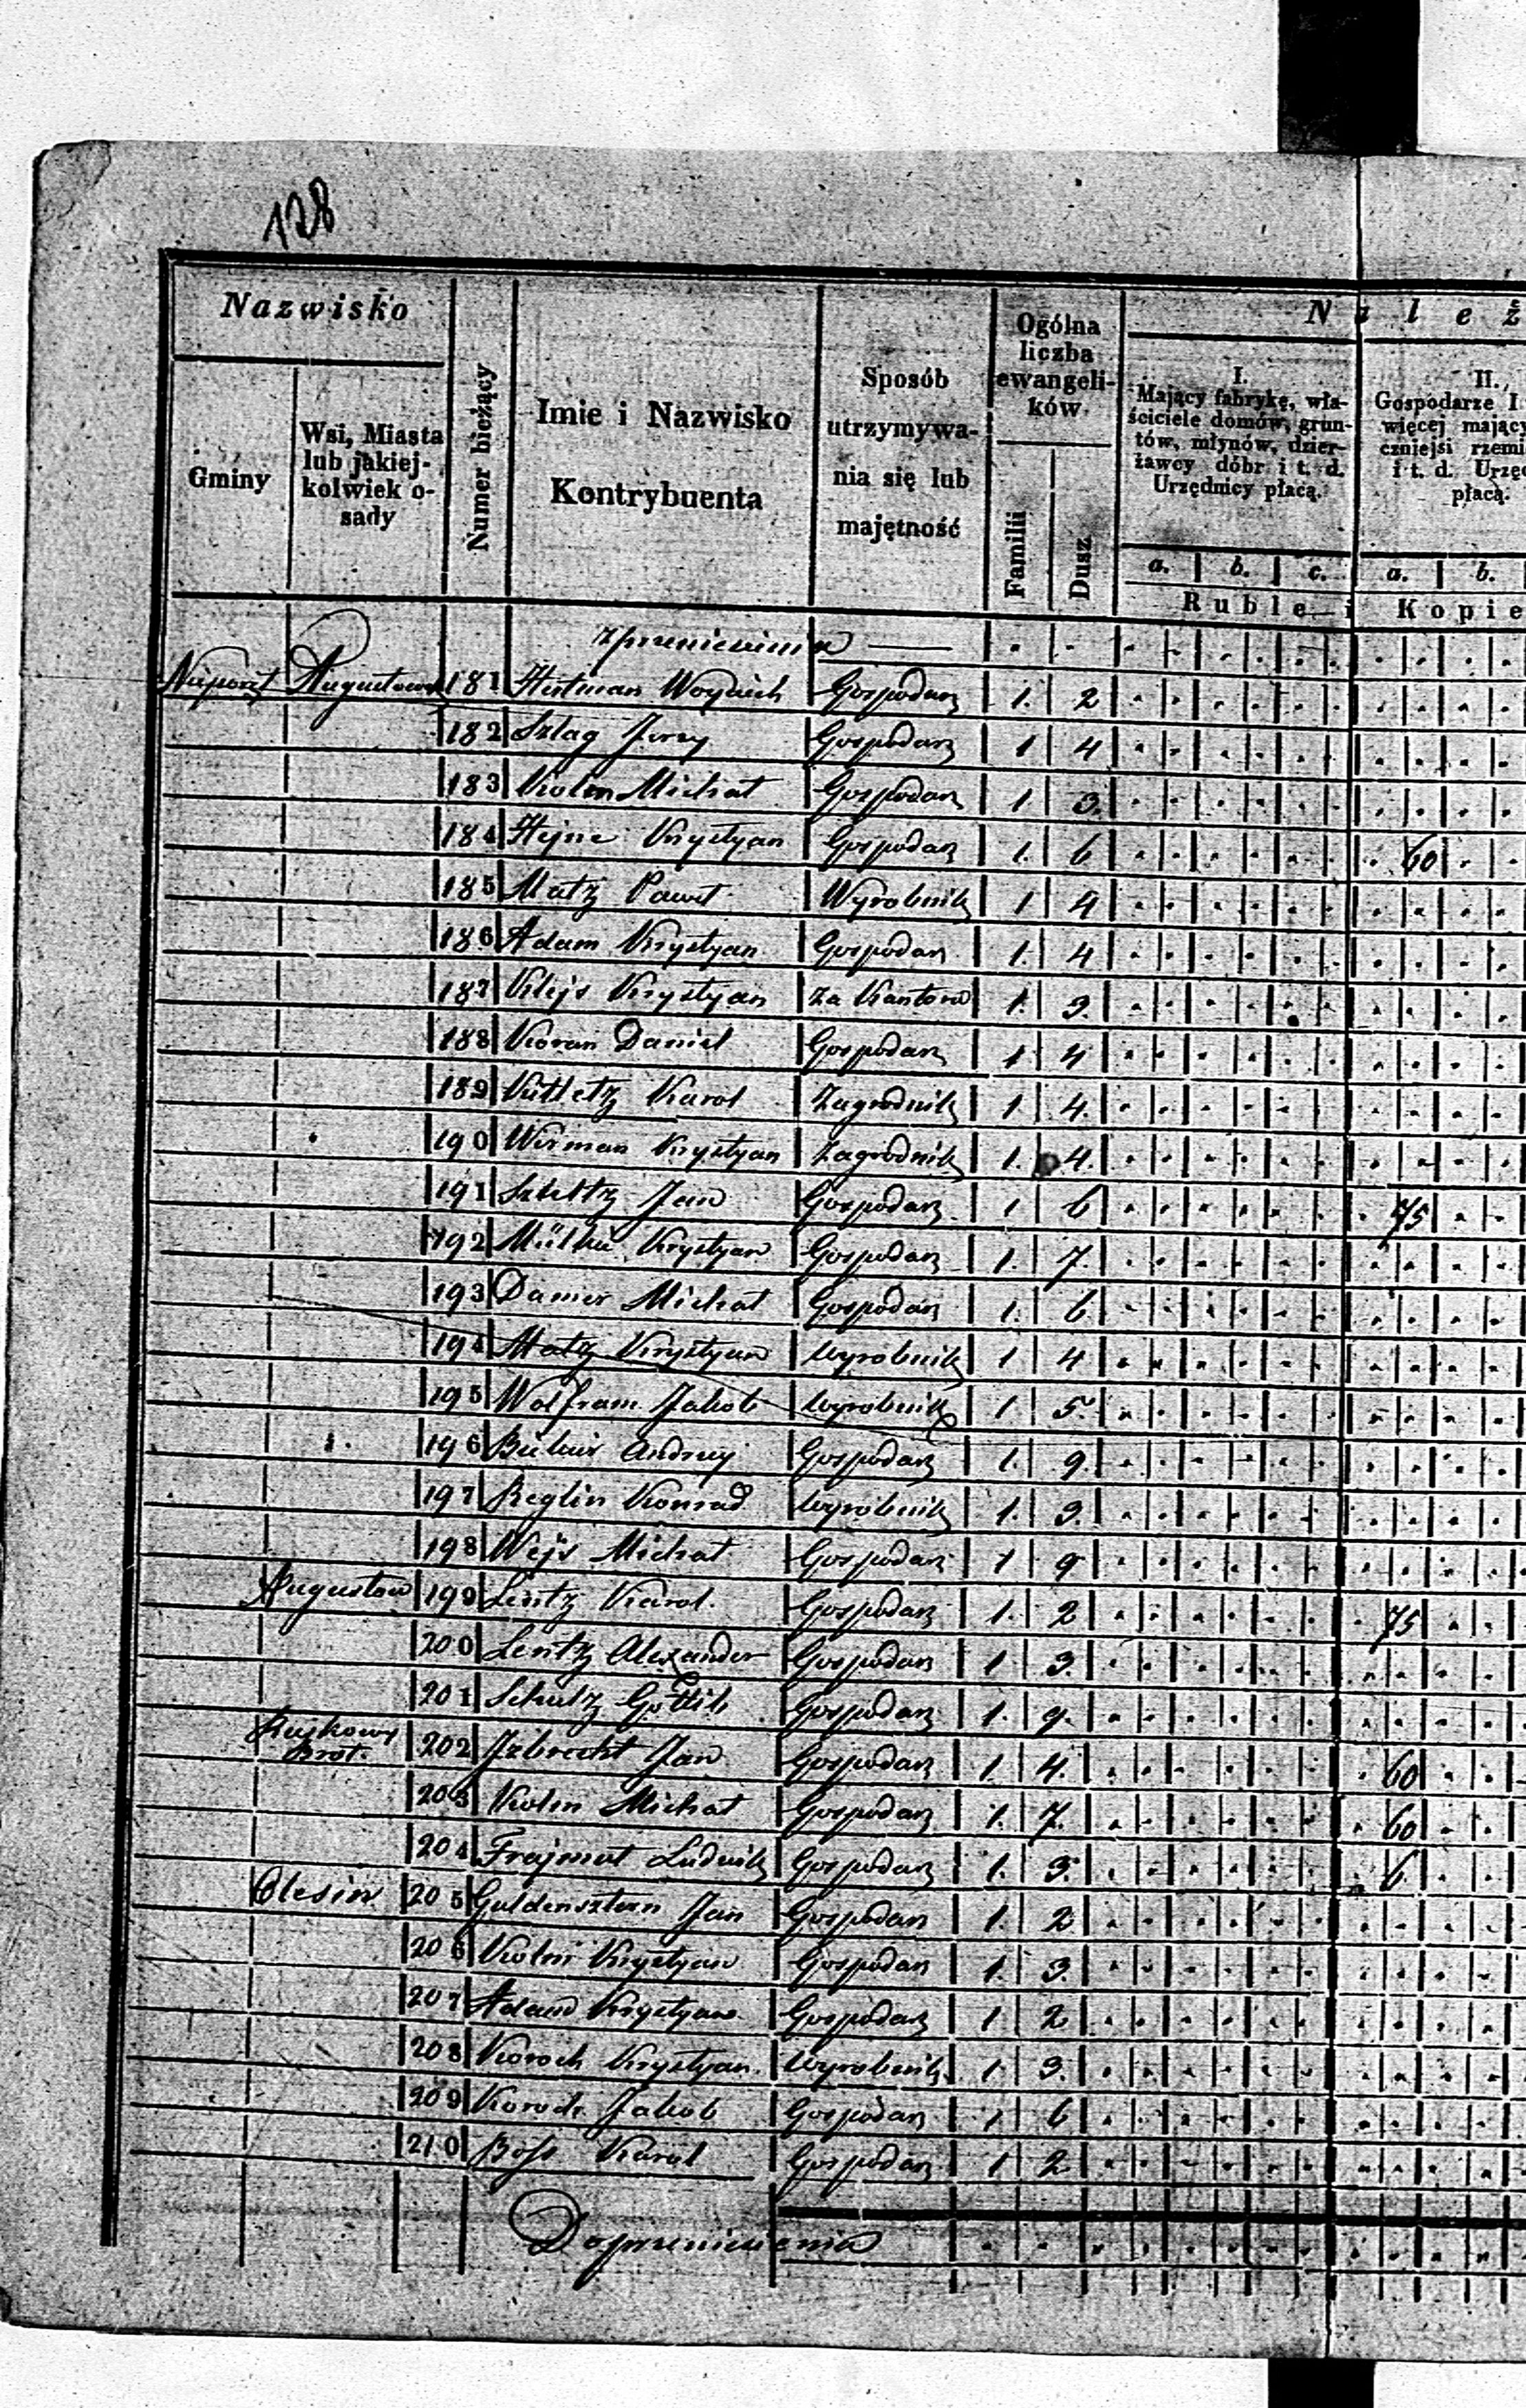 128
Nazwisko
Gminy
Wsi, Miasta lub jakiej-kolwiek o-sady
Numer bieżący
Imie i Nazwisko Kontrybuenta
Sposób utrzymywa-nia się lub majętność
Ogólna liczba ewangeli-ków
Familii
Dusz
Należ
I. Mający fabrykę, wła-ściciele domów, grun-tów, młynów, dzier-żawcy dóbr i t. d. Urzędnicy płacą.
II. Gospodarze I więcej mający czniejsi rzemi i t. d. Urzęd płacą.
a. b. c. a. b.
Ruble i Kopie
Z przeniesienia
Augustow 181 Hertman Woyciech Gospodarz 1. 2
182 Szlag Jerzy Gospodarz 1 4
183 Kolm Michał Gospodarz 1 3.
184 Hejne Krystyan Gospodarz 1. 6 60
185 Matz Paweł Wyrobnik 1 4
186 Adam Krystyan Gospodarz 1. 4
187 Klejs Krystyan za Kantora 1. 3.
188 Koran Daniel Gospodarz 1 4
189 Karol Zagrodnik 1 4.
190 Wirman Krystyan Zagrodnik 1. 4.
191 Jan Gospodarz 1 6 75
192 Krystyan Gospodarz 1. 7.
193 Damer Michał Gospodarz 1. 6
194 Matz Krystyan Wyrobnik 1 4
195 Wolfram Jakob Wyrobnik 1 5.
196 Andrzej Gospodarz 1. 9.
197 Reglin Konrad Wyrobnik 1. 3.
198 Wejs Michał Gospodarz 1 9
Augustow 199 Lentz Karol Gospodarz 1. 2 75
200 Lentz Alexander Gospodarz 1 3.
201 Schultz Gottlib Gospodarz 1. 9.
202 Jzbrecht Jan Gospodarz 1. 4. 60
203 Kolm Michał Gospodarz 1. 7. 60
204 Frajmut Ludwik Gospodarz 1. 3. 6.
Olesin 205 Guldensztern Jan Gospodarz 1. 2
206 Kolm Krystyan Gospodarz 1. 3.
207 Adam Krystyan Gospodarz 1 2
208 Koroch Krystyan Wyrobnik 1 3.
209 Jakob Gospodarz 1 6
210 Karol Gospodarz 1 2
Do przeniesienia